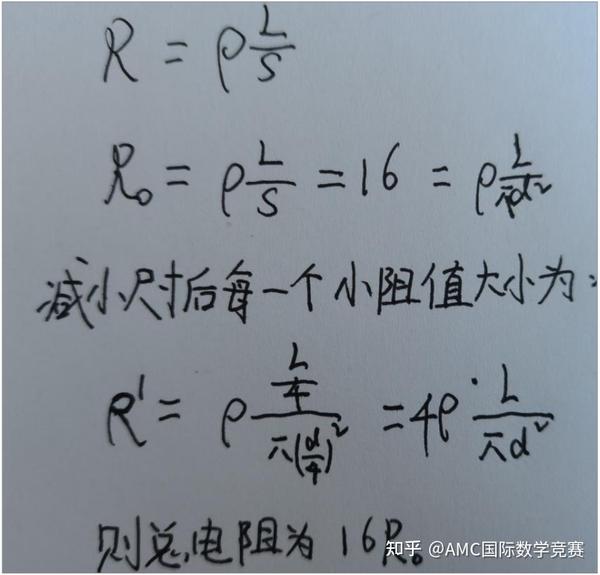 R = ρ L/S
R₀ = ρ L/S = 16 = ρ L/πd²
减小尺寸后每一个小阻值大小为:
R' = ρ (L/4)/(π(d/4)²) = 4ρ · L/(πd²)
则总电阻为 16R₀
知乎 @AMC国际数学竞赛